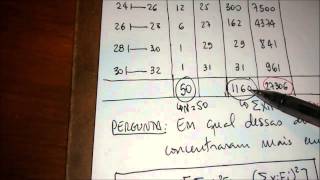 24 |— 26 12 25 300 7500
26 |— 28 6 27 162 4374
28 |— 30 1 29 29 841
30 |— 32 1 31 31 961
50 1160 27306
N=50 Σxi
PERGUNTA: Em qual dessas
concentraram mais em